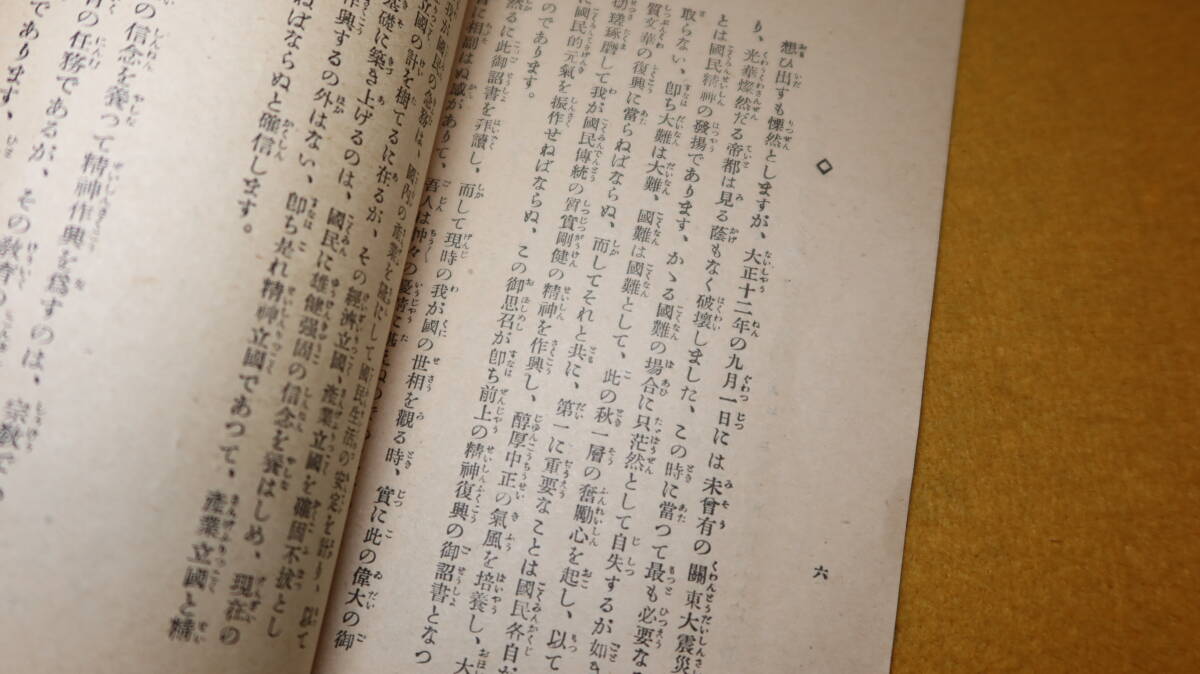 ◇
想ひ出すも慄然としますが、大正十二年の九月一日には未曾有の關東大震災
り、光華燦然だる帝都は見る蔭もなく破壞しました、この時に當つて最も必要な
とは國民精神の發揚であります、かゝる國難の場合に只茫然として自失するが如き
取らない、卽ち大難は大難、國難は國難として、此の秋一層の奮勵心を起し、以て
質文華の復興に當らねばならぬ、而してそれと共に、第一に重要なことは國民各自が
切瑳琢磨して我が國民傳統の質實剛健の精神を作興し、醇厚中正の氣風を培養し、大
に國民的元氣を振作せねばならぬ、この御思召が卽ち前上の精神復興の御詔書となつ
のであります。
然るに此御詔書を拜讀し、而して現時の我が國の世相を觀る時、實に此の偉大の御
に相副はぬ感がありて、吾人は忡々の憂
我が國民の急務は、國內の產業を
立國の計を樹てるに在るが、その經濟立國、產業立國を確固不拔とし
基礎に築き上げるのは、國民に雄健强固の信念を養はしめ、現在の
作興するの外はない、卽ち是れ精神立國であつて、產業立國と精
ねばならぬと確信します。
の信念を養つて精神作興を爲すのは、宗敎で
の任務であるが、その敎育の
であります、
六